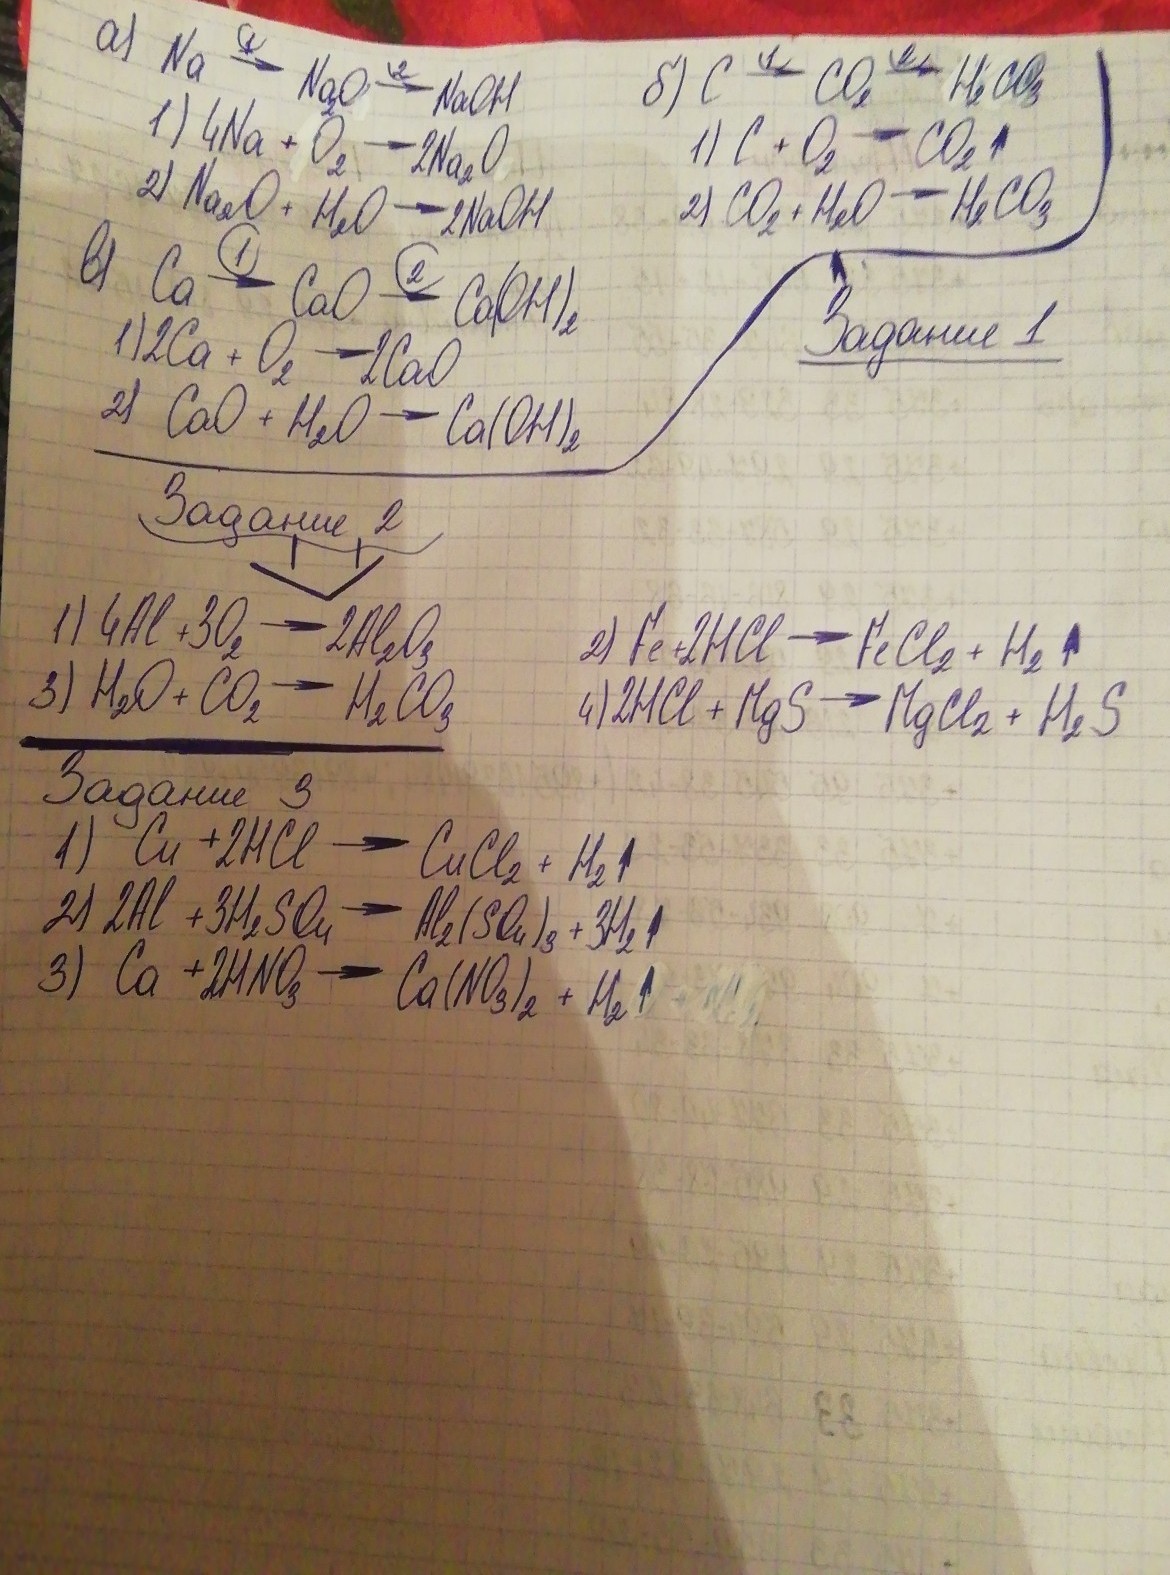 а) Na ①→ Na2O ②→ NaOH
1) 4Na + O2 → 2Na2O
2) Na2O + H2O → 2NaOH
б) C ①→ CO2 ②→ H2CO3
1) C + O2 → CO2↑
2) CO2 + H2O → H2CO3
в) Ca ①→ CaO ②→ Ca(OH)2
1) 2Ca + O2 → 2CaO
2) CaO + H2O → Ca(OH)2
Задание 1
Задание 2
1) 4Al + 3O2 → 2Al2O3
2) Fe + 2HCl → FeCl2 + H2↑
3) H2O + CO2 → H2CO3
4) 2HCl + MgS → MgCl2 + H2S
Задание 3
1) Cu + 2HCl → CuCl2 + H2↑
2) 2Al + 3H2SO4 → Al2(SO4)3 + 3H2↑
3) Ca + 2HNO3 → Ca(NO3)2 + H2↑